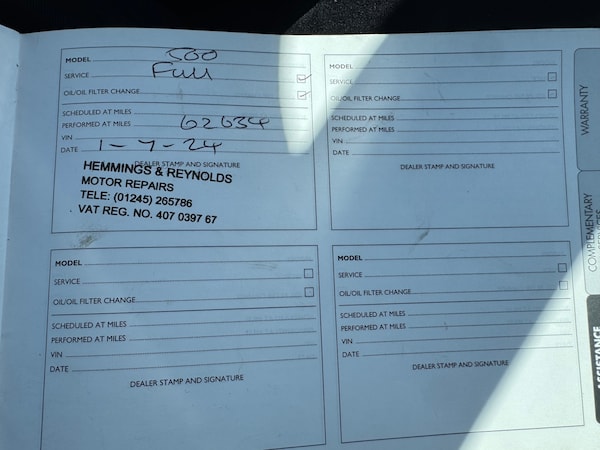 MODEL 500
SERVICE Full
OIL/OIL FILTER CHANGE
SCHEDULED AT MILES
PERFORMED AT MILES 62634
VIN
DATE 1-7-24
DEALER STAMP AND SIGNATURE
HEMMINGS & REYNOLDS
MOTOR REPAIRS
TELE: (01245) 265786
VAT REG. NO. 407 0397 67
MODEL
SERVICE
OIL/OIL FILTER CHANGE
SCHEDULED AT MILES
PERFORMED AT MILES
VIN
DATE
DEALER STAMP AND SIGNATURE
MODEL
SERVICE
OIL/OIL FILTER CHANGE
SCHEDULED AT MILES
PERFORMED AT MILES
VIN
DATE
DEALER STAMP AND SIGNATURE
MODEL
SERVICE
OIL/OIL FILTER CHANGE
SCHEDULED AT MILES
PERFORMED AT MILES
VIN
DATE
DEALER STAMP AND SIGNATURE
WARRANTY
COMPLEMENTARY
SERVICES
ASSISTANCE